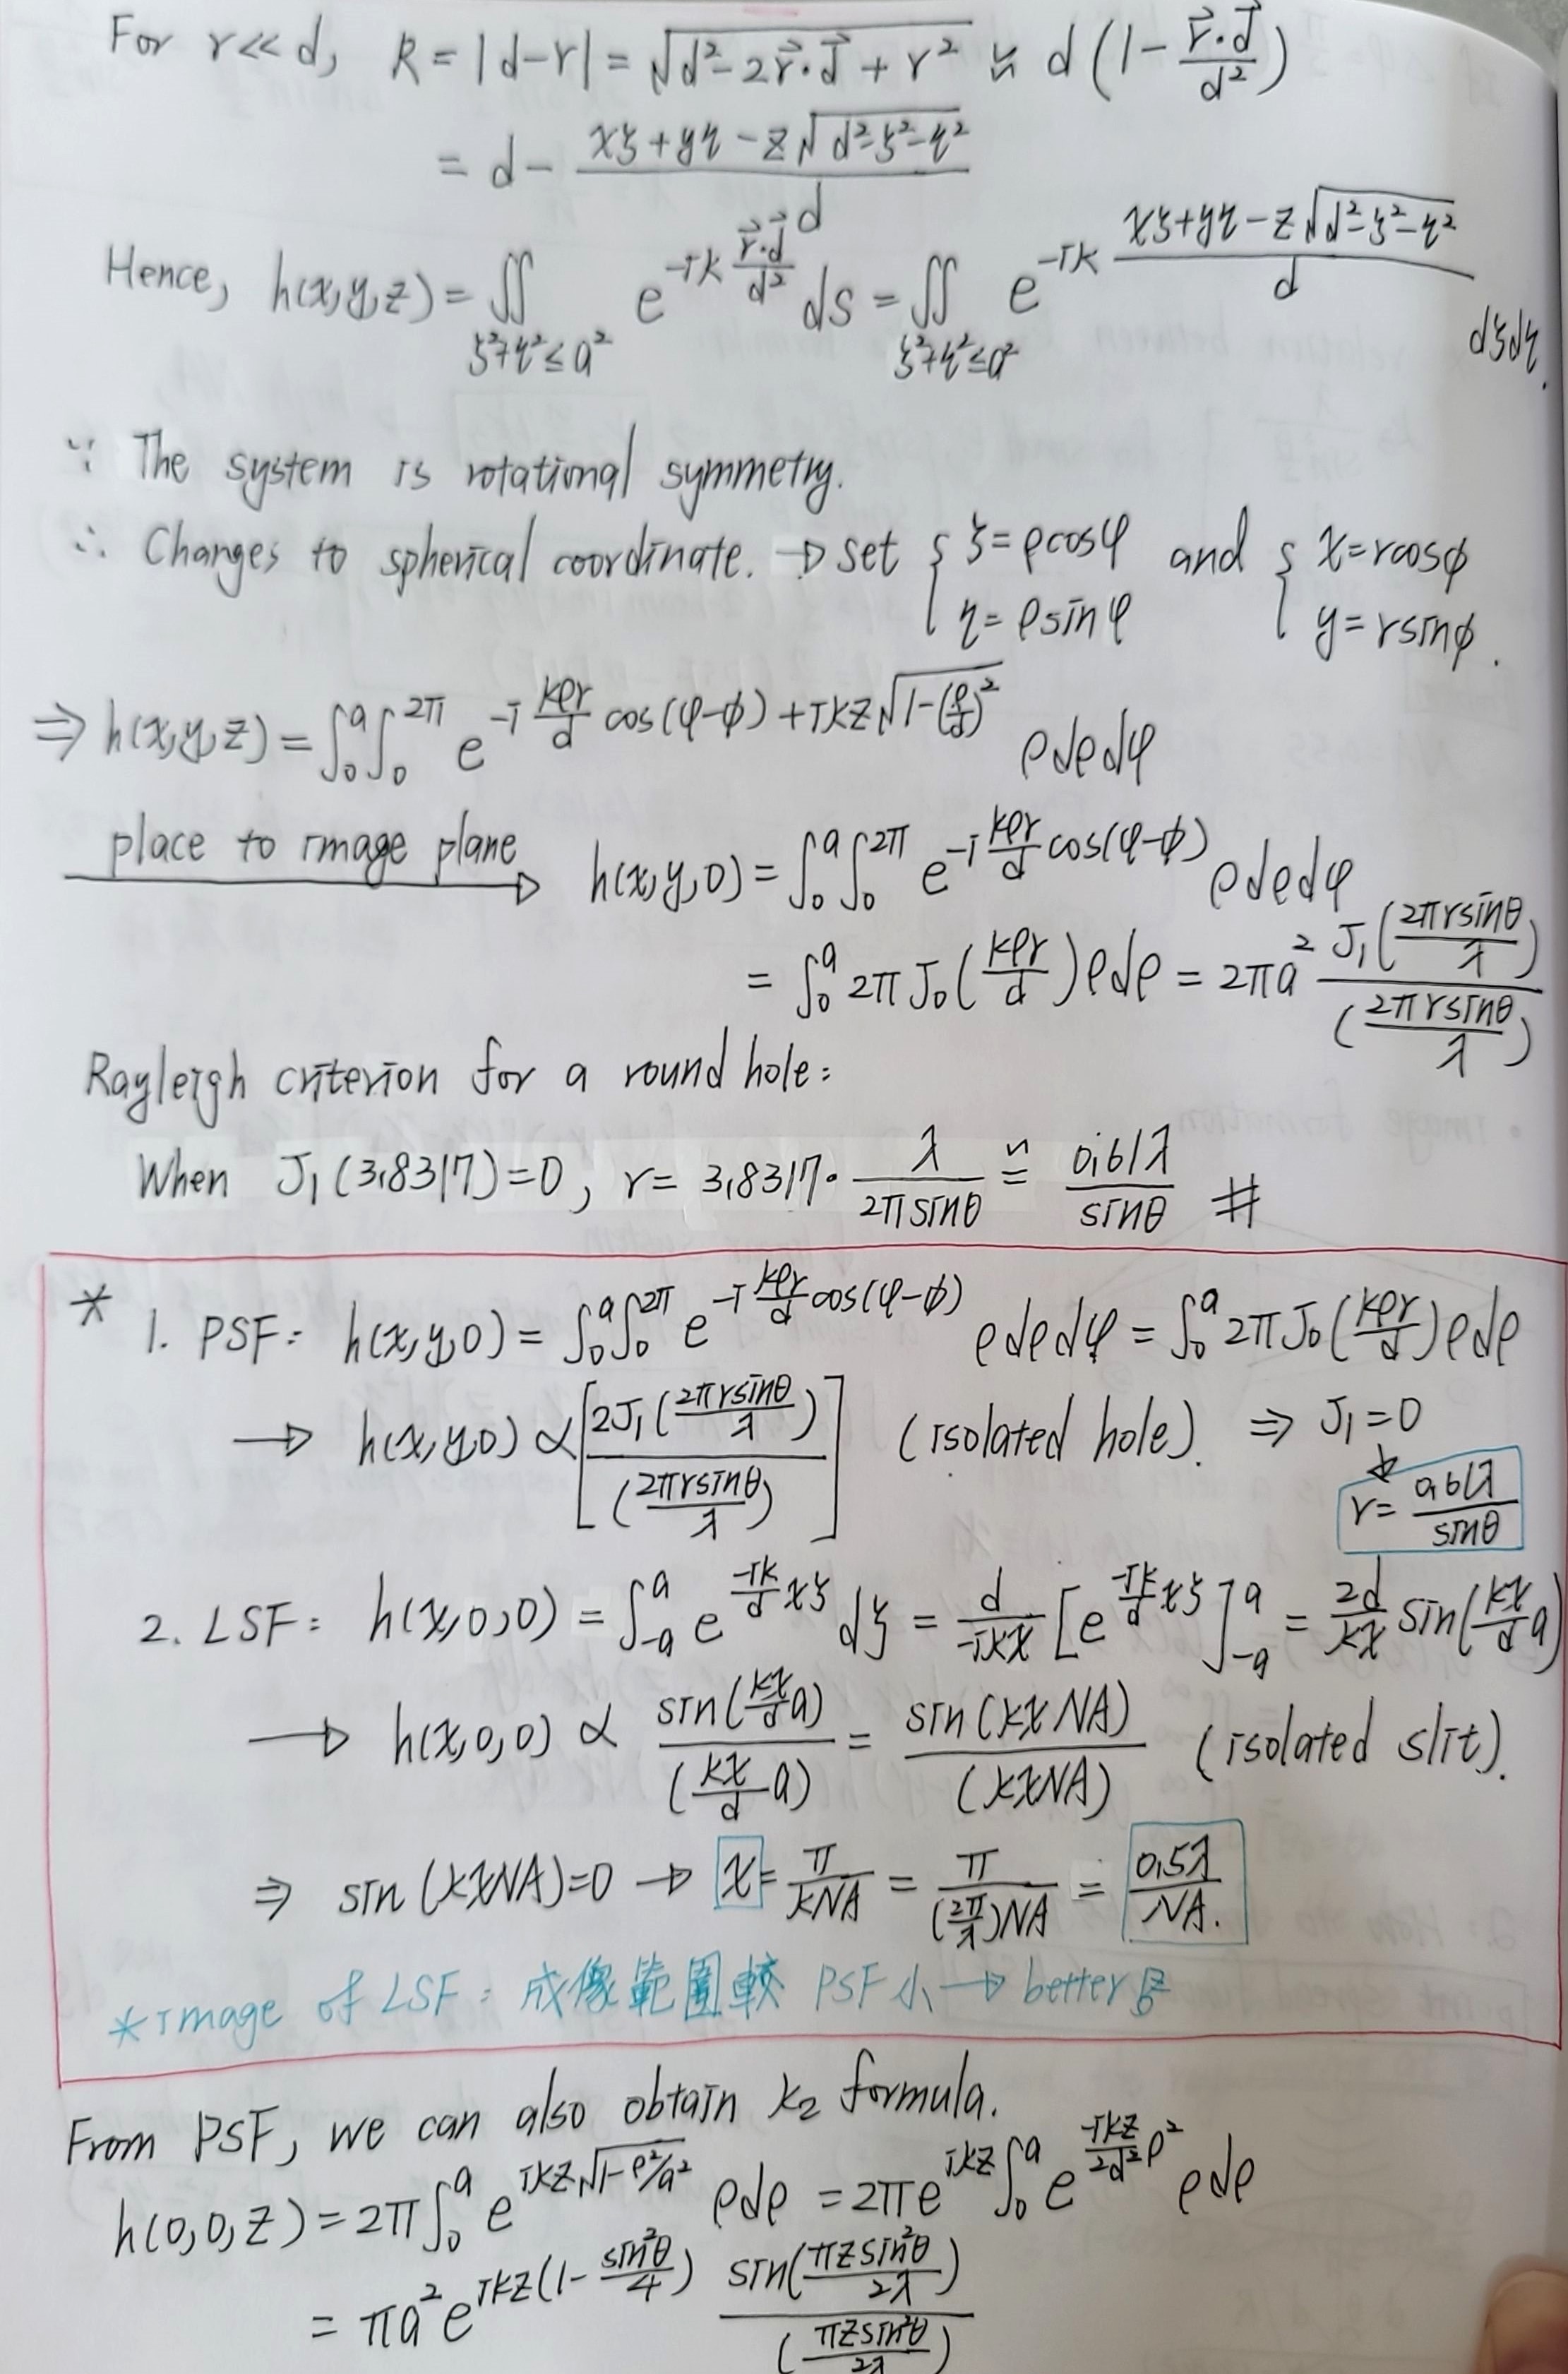 For r<<d, R = |d-r| = √(d²-2r⃗·d⃗+r²) ≒ d(1 - r⃗·d⃗/d²)
= d - (xξ+yη-z√(d²-ξ²-η²))/d
Hence, h(x,y,z) = ∬_{ξ²+η²≤a²} e^{-ik r⃗·d⃗/d²} ds = ∬_{ξ²+η²≤a²} e^{-ik (xξ+yη-z√(d²-ξ²-η²))/d} dξdη.
∵ The system is rotational symmetry.
∴ Changes to spherical coordinate. → set { ξ=ρcosφ and { x=rcosϕ
η=ρsinφ y=rsinϕ.
⇒ h(x,y,z) = ∫₀^a ∫₀^{2π} e^{-i (kρr/d) cos(φ-ϕ) + ikz√(1-(ρ/d)²)} ρdρdφ
place to image plane → h(x,y,0) = ∫₀^a ∫₀^{2π} e^{-i (kρr/d) cos(φ-ϕ)} ρdρdφ
= ∫₀^a 2π J₀(kρr/d) ρdρ = 2πa² J₁(2πrsinθ/λ)/(2πrsinθ/λ)
Rayleigh criterion for a round hole:
When J₁(3.8317)=0, r = 3.8317· λ/(2πsinθ) ≒ 0.61λ/sinθ #
* 1. PSF: h(x,y,0) = ∫₀^a ∫₀^{2π} e^{-i (kρr/d) cos(φ-ϕ)} ρdρdφ = ∫₀^a 2π J₀(kρr/d) ρdρ
→ h(x,y,0) ∝ [2J₁(2πrsinθ/λ)/(2πrsinθ/λ)] (isolated hole). ⇒ J₁=0
↓ r = 0.61λ/sinθ
2. LSF: h(x,0,0) = ∫_{-a}^a e^{(-ik/d) xξ} dξ = d/(-ikx) [e^{(-ik/d) xξ}]_{-a}^a = (2d/kx) sin((kx/d)a)
→ h(x,0,0) ∝ sin((kx/d)a)/((kx/d)a) = sin(kxNA)/(kxNA) (isolated slit).
⇒ sin(kxNA)=0 → x = π/(kNA) = π/((2π/λ)NA) = 0.5λ/NA.
*image of LSF: 成像範圍較 PSF小 → better
From PSF, we can also obtain k₂ formula.
h(0,0,z) = 2π∫₀^a e^{ikz√(1-ρ²/a²)} ρdρ = 2πe^{ikz} ∫₀^a e^{(-ikz/2d²) ρ²} ρdρ
= πa² e^{ikz(1 - sin²θ/4)} sin(πzsin²θ/2λ)/(πzsin²θ/2λ)